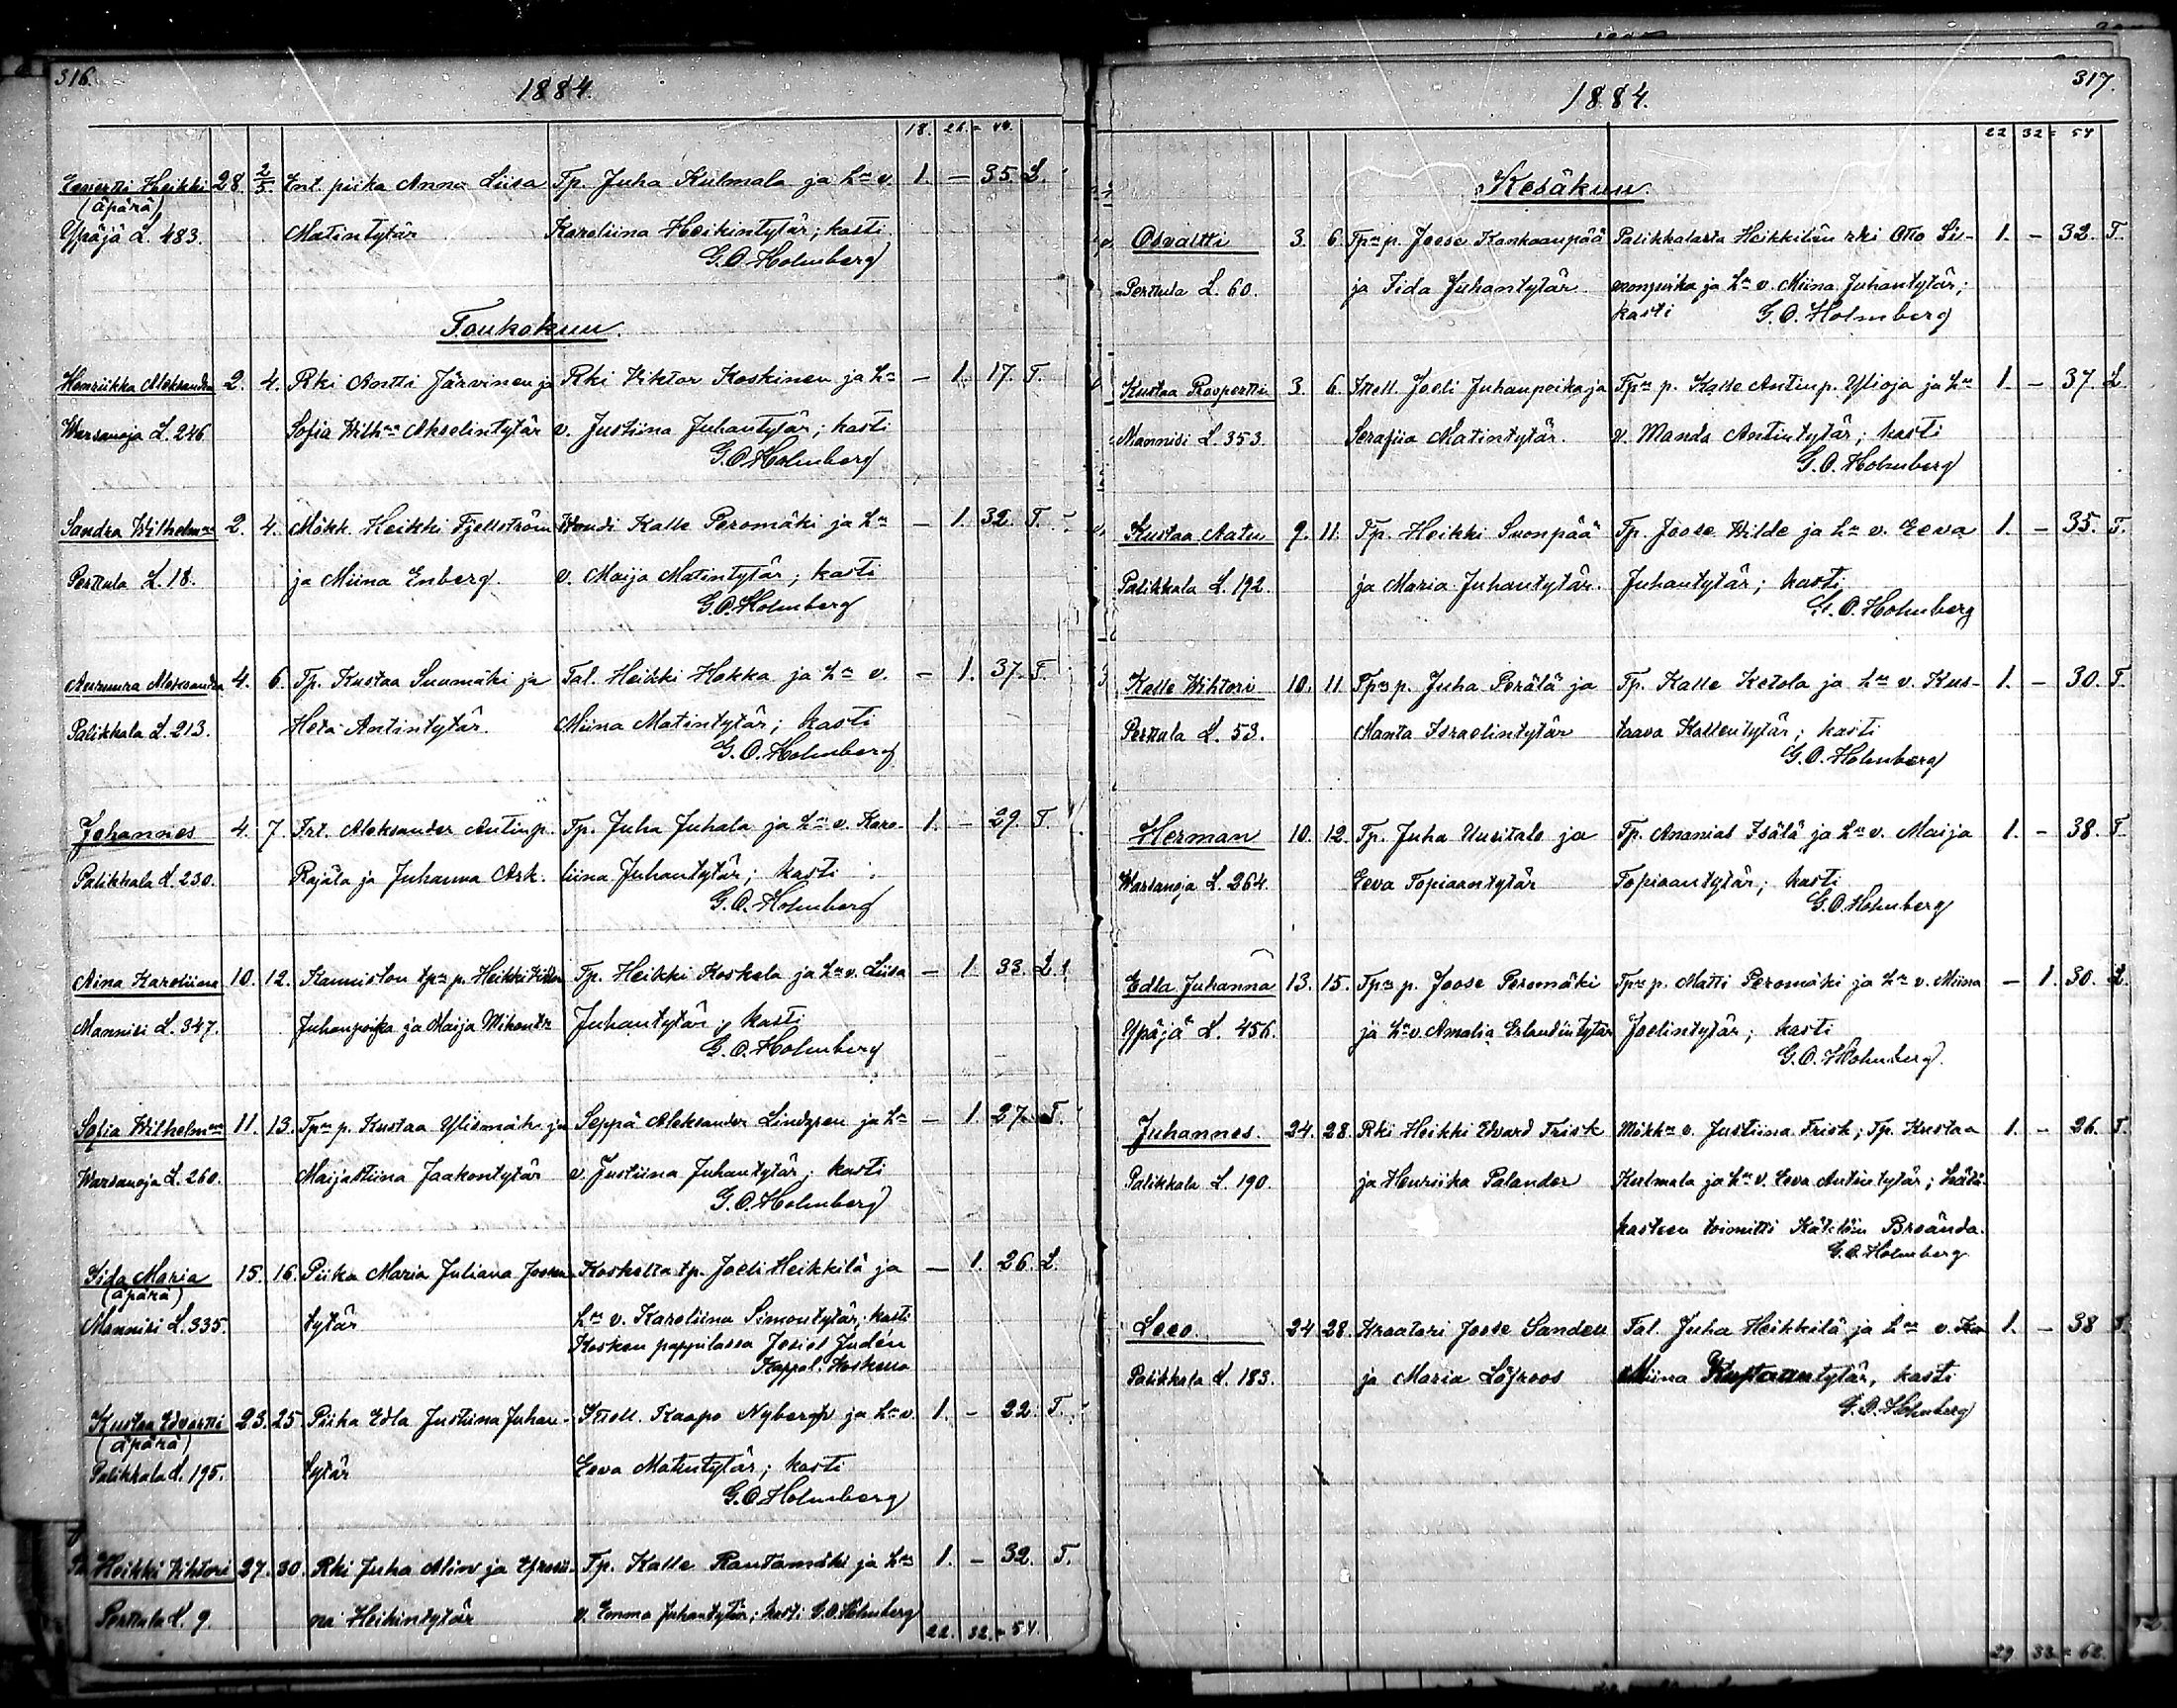 316.
1884.
18. 26. = 44.
Eevertti Heikki 28. 2/5. Ent. piika Anna Liisa Tp. Juha Kulmala ja hn v. 1. — 35. L.
(äpärä)
Ypäjä L. 483. Matintytär Karoliina Heikintytär; kasti
G.O. Holmberg
Toukokuu.
Henriikka Aleksandra 2. 4. Rki Antti Järvinen ja Rki Viktor Koskinen ja hn — 1. 17. T.
Warsanoja L. 246 Sofia Wilhna Akselintytär v. Justiina Juhantytär; kasti
G.O. Holmberg
Sandra Wilhelmna 2. 4. Mökk. Heikki Fjellström Vouti Kalle Peromäki ja hn — 1. 32. T.
Perttula L. 18. ja Miina Enberg. v. Maija Matintytär; kasti
G.O. Holmberg
Aleksandra 4. 6. Tp. Kustaa Suumäki ja Tal. Heikki Hakka ja hn v. — 1. 37. T.
Palikkala L. 213. Heta Antintytär. Miina Matintytär; kasti
G.O. Holmberg
Johannes 4. 7. Trt. Aleksander Antinp. Tp. Juha Juhala ja hn v. Karo- 1. — 29. T.
Palikkala L. 230. Rajala ja Juhanna Ark. liina Juhantytär; kasti
G.O. Holmberg
Aina Karoliina 10. 12. Kanniston tpn p. Heikki Tp. Heikki Koskela ja hn v. Liisa — 1. 33. L.
Mannisi L. 347. Juhanpoika ja Maija Mikontr Juhantytär; kasti
G.O. Holmberg
Sofia Wilhelmna 11. 13. Tpn p. Kustaa Ylismäki ja Seppä Aleksander Lindgren ja hn — 1. 27. T.
Warsanoja L. 260. Maijastiina Jaakontytär v. Justiina Juhantytär; kasti
G.O. Holmberg
Iida Maria 15. 16. Piika Maria Juliana Joosen- Koskelta tp. Joeli Heikkilä ja — 1. 26. L.
(äpärä)
Mannisi L. 335. tytär hn v. Karoliina Simontytär; kasti
Kosken pappilassa Josief Judén
Kappal. Koskessa
Kustaa Edvartti 23. 25. Piika Edla Justiina Juhan- Itsell. Kaapo Nyberg ja hn v. 1. — 22. T.
(äpärä)
Palikkala L. 195. tytär Eeva Matintytär; kasti
G.O. Holmberg
Heikki Vihtori 27. 30. Rki Juha Alin ja Efrosii- Tp. Kalle Rautamäki ja hn 1. — 32. T.
Perttula L. 9. na Heikintytär v. Emma Juhantytär; kasti G.O. Holmberg
22. 32. = 54.
317.
1884.
22 32 = 54
Kesäkuu.
Osvaltti 3. 6. Tpn p. Joose Kankaanpää Palikkalasta Heikkilän rki Otto Si- 1. — 32. T.
Perttula L. 60. ja Iida Juhantytär monpoika ja hn v. Miina Juhantytär;
kasti G.O. Holmberg
Kustaa Rospertti 3. 6. Itsell. Joeli Juhanpoika ja Tpn p. Kalle Antinp. Ylioja ja hn 1. — 37. L.
Mannisi L. 353. Serafiia Matintytär. v. Manda Antintytär; kasti
G.O. Holmberg
Kustaa Aatu 9. 11. Tp. Heikki Suonpää Tp. Joose Wilde ja hn v. Eeva 1. — 35. T.
Palikkala L. 192. ja Maria Juhantytär. Juhantytär; kasti
G.O. Holmberg
Kalle Wihtori 10. 11 Tpn p. Juha Perälä ja Tp. Kalle Ketola ja hn v. Kus- 1. — 30. T.
Perttula L. 53. Manta Israelintytär taava Kallentytär; kasti
G.O. Holmberg
Herman 10. 12. Tp. Juha Uusitalo ja Tp. Ananias Isälä ja hn v. Maija 1. — 38. T.
Warsanoja L. 264. Eeva Topiaantytär Topiaantytär; kasti
G.O. Holmberg
Edla Juhanna 13. 15. Tpn p. Joose Peromäki Tpn p. Matti Peromäki ja hn v. Miina — 1. 30. L.
Ypäjä L. 456. ja hn v. Amalia Erlandintytär Joelintytär; kasti
G.O. Holmberg.
Juhannes. 24. 28. Rki Heikki Edvard Frisk Mökkn v. Justiina Frisk; Tp. Kustaa 1. — 26. T.
Palikkala L. 190. ja Henriika Palander Kulmala ja hn v. Eeva Antintytär; hätä-
kasteen toimitti Kätilön Broända.
G.O. Holmberg
Leeo. 24 28. Kraatari Joose Sandell Tal. Juha Heikkilä ja hn v. 1. — 38 T.
Palikkala L. 183. ja Maria Löfroos Miina Kustaantytär, kasti
G.O. Holmberg
29. 33. = 62.